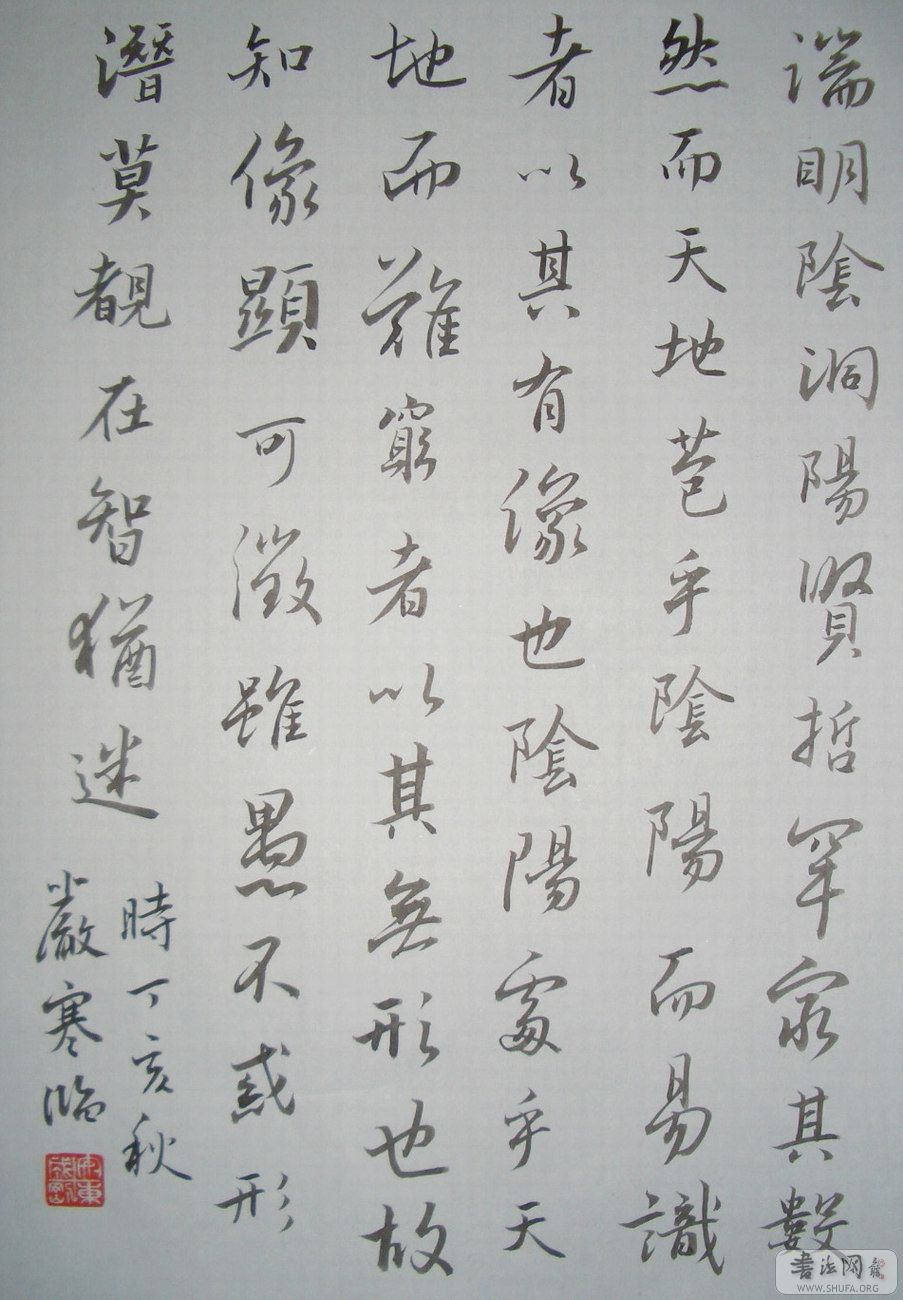 端明陰洞陽賢哲罕窮其數
然而天地苞乎陰陽而易識
者以其有像也陰陽處乎天
地而難窮者以其無形也故
知像顯可徵雖愚不惑形
潛莫覩在智猶迷
時丁亥秋
嚴寒臨
書法网
WWW.SHUFA.ORG